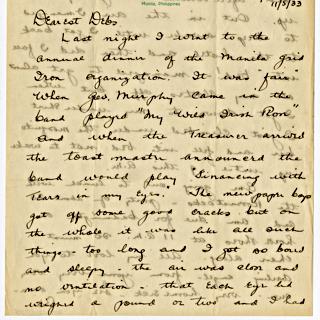 Manila, Philippines
11/5/33
Dearest Debs
Last night I went to the
annual dinner of the Manila Grid
Iron organization. It was "fair"
When Gov. Murphy came in the
band played "My Wild Irish Rose"
and when the Treasurer arrived
the toast mastr announced the
band would play "Financing with
Tears in my Eyes. The newspaper boys
got off some good cracks but on
the whole it was like all such
things - too long and I got so bored
and sleepy the air was close and
no ventilation - that each Eye lid
weighed a pound or two and I had